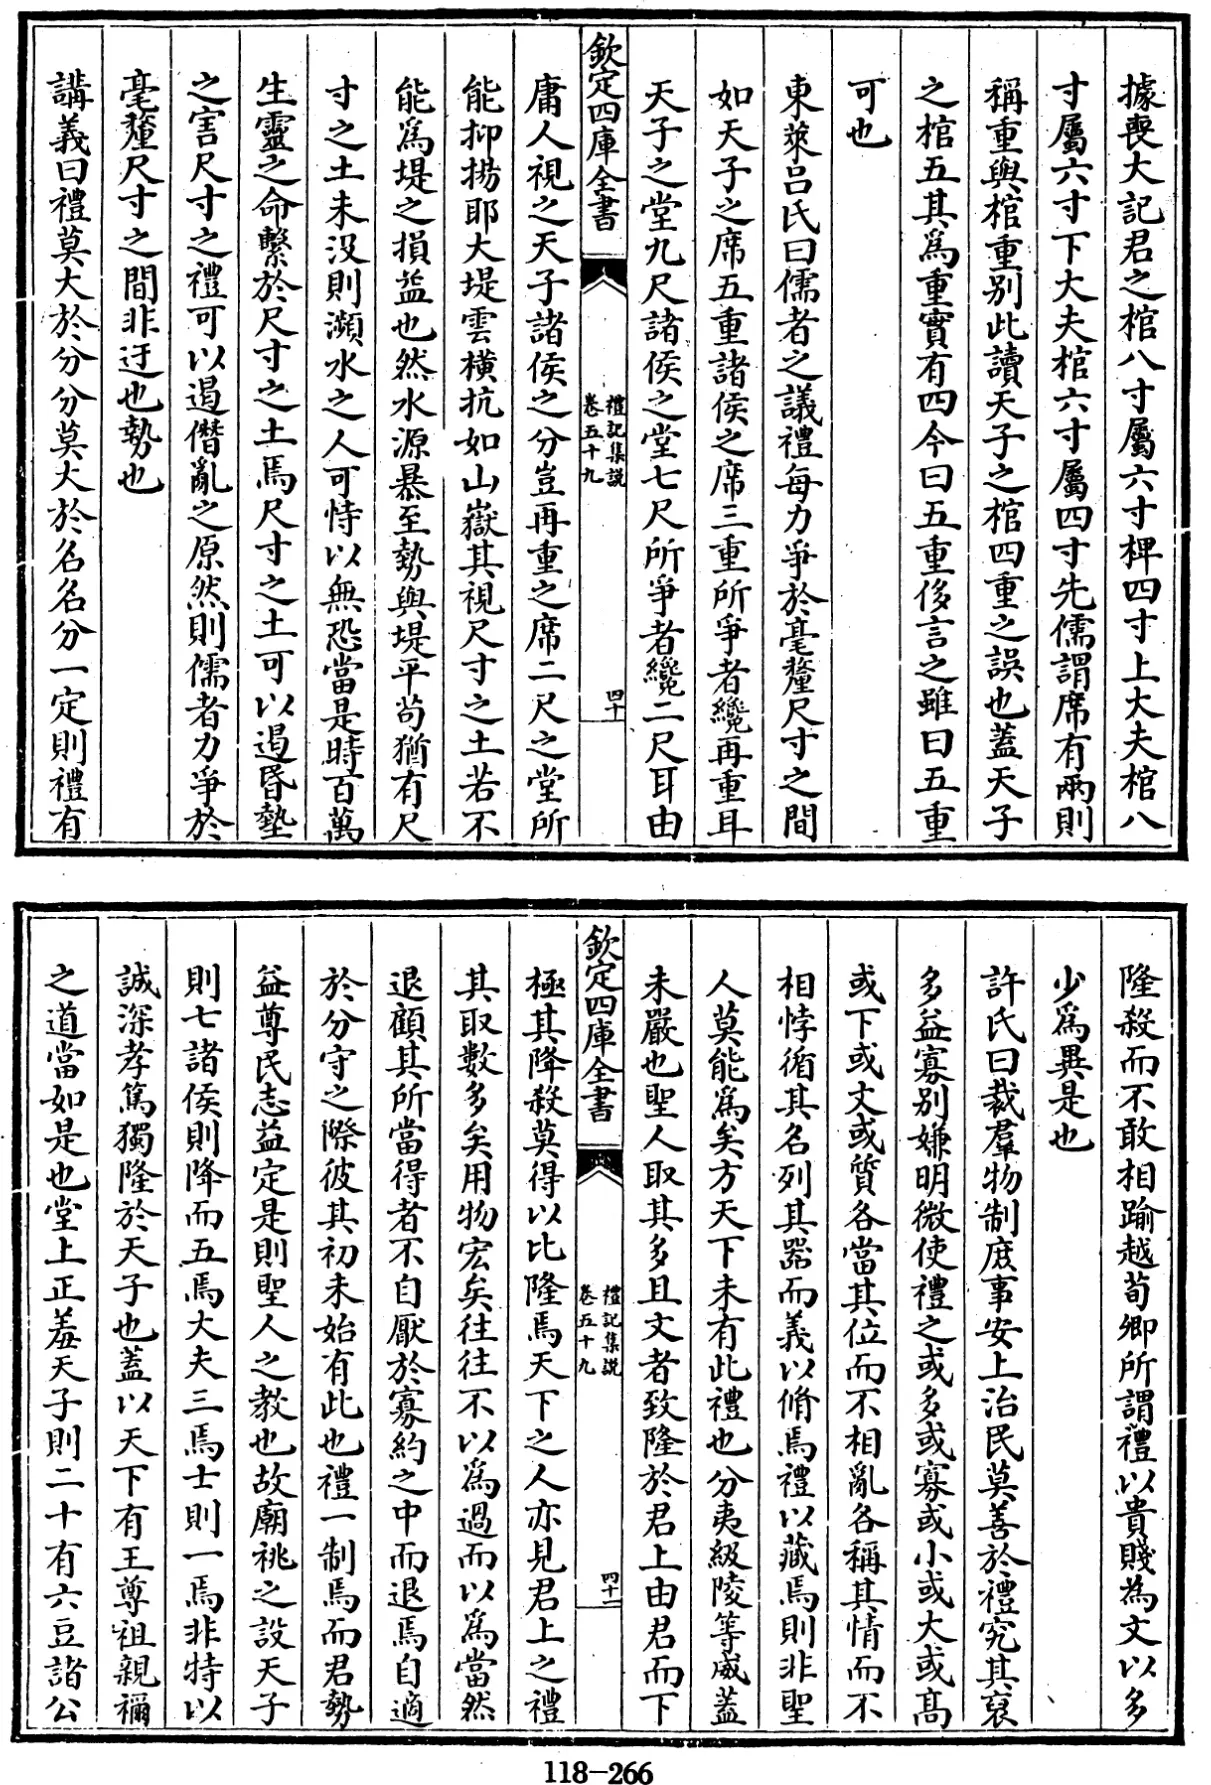 據喪大記君之棺八寸屬六寸椑四寸上大夫棺八
寸屬六寸下大夫棺六寸屬四寸先儒謂席有兩則
稱重與棺重別此讀天子之棺四重之誤也蓋天子
之棺五其爲重實有四今曰五重侈言之雖曰五重
可也
東萊呂氏曰儒者之議禮每力爭於毫釐尺寸之間
如天子之席五重諸侯之席三重所爭者纔再重耳
天子之堂九尺諸侯之堂七尺所爭者纔二尺耳由
欽定四庫全書
禮記集說
卷五十九
四十
庸人視之天子諸侯之分豈再重之席二尺之堂所
能抑揚耶大堤雲橫抗如山嶽其視尺寸之土若不
能爲堤之損益也然水源暴至勢與堤平茍猶有尺
寸之土未沒則瀕水之人可恃以無恐當是時百萬
生靈之命繫於尺寸之土焉尺寸之土可以遏昏墊
之害尺寸之禮可以遏僭亂之原然則儒者力爭於
毫釐尺寸之間非迂也勢也
講義曰禮莫大於分分莫大於名名分一定則禮有
隆殺而不敢相踰越荀卿所謂禮以貴賤為文以多
少爲異是也
許氏曰裁羣物制庶事安上治民莫善於禮究其裒
多益寡別嫌明微使禮之或多或寡或小或大或高
或下或文或質各當其位而不相亂各稱其情而不
相悖循其名列其器而義以脩焉禮以藏焉則非聖
人莫能爲矣方天下未有此禮也分夷級陵等威蓋
未嚴也聖人取其多且文者致隆於君上由君而下
欽定四庫全書
禮記集說
卷五十九
四十一
極其降殺莫得以比隆焉天下之人亦見君上之禮
其取數多矣用物宏矣往往不以為過而以爲當然
退顧其所當得者不自厭於寡約之中而退焉自適
於分守之際彼其初未始有此也禮一制焉而君勢
益尊民志益定是則聖人之教也故廟祧之設天子
則七諸侯則降而五焉大夫三焉士則一焉非特以
誠深孝篤獨隆於天子也蓋以天下有王尊祖親禰
之道當如是也堂上正羞天子則二十有六豆諸公
118-266